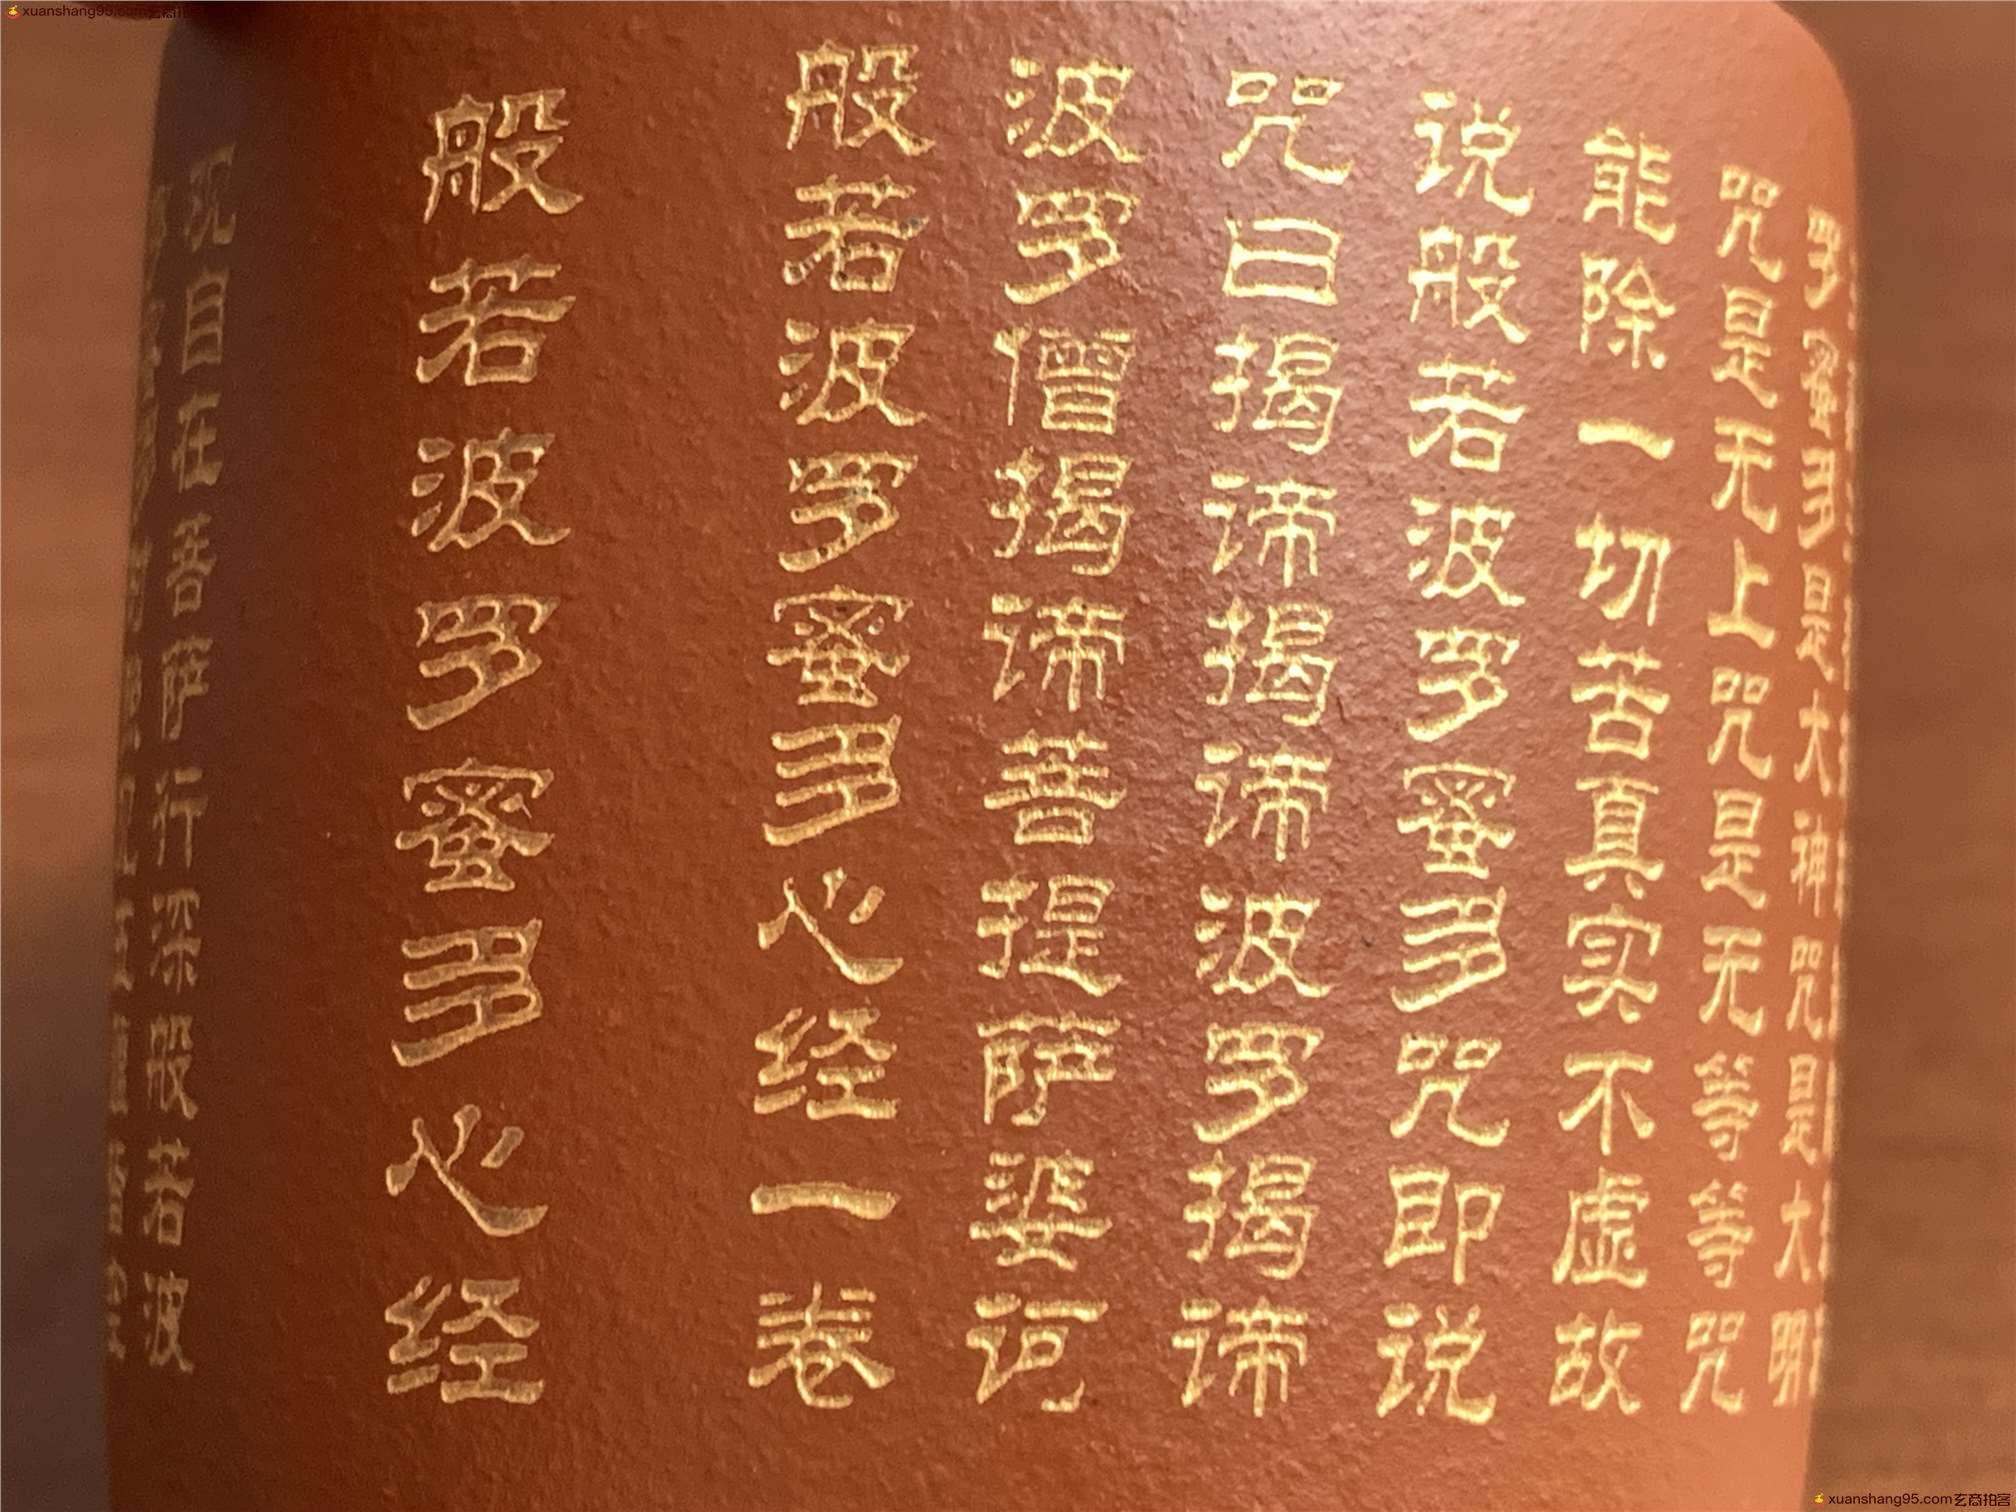 罗蜜多是大神咒是大明
咒是无上咒是无等等咒
能除一切苦真实不虚故
说般若波罗蜜多咒即说
咒曰揭谛揭谛波罗揭谛
波罗僧揭谛菩提萨婆诃
般若波罗蜜多心经一卷
般若波罗蜜多心经
观自在菩萨行深般若波
xuanshang95.com玄商拍客
xuanshang95.com玄商拍客